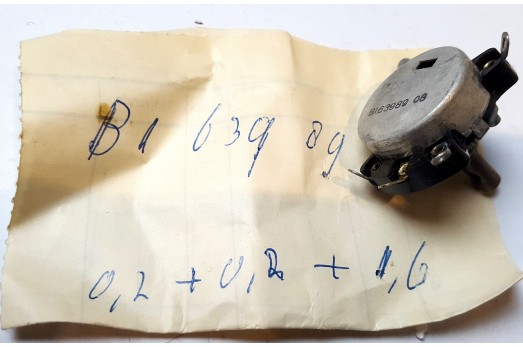 B1 639 89
8163989 08
0,2 + 0,2 + 1,6